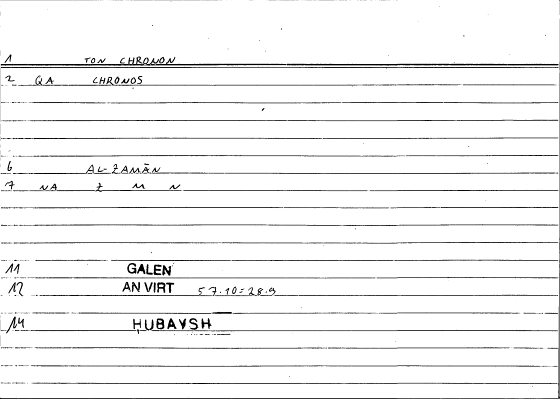 1 TON CHRONON
2 QA CHRONOS
6 AL-ZAMĀN
7 NA Z M N
11 GALEN
12 AN VIRT 57.10=28.9
14 HUBAYSH